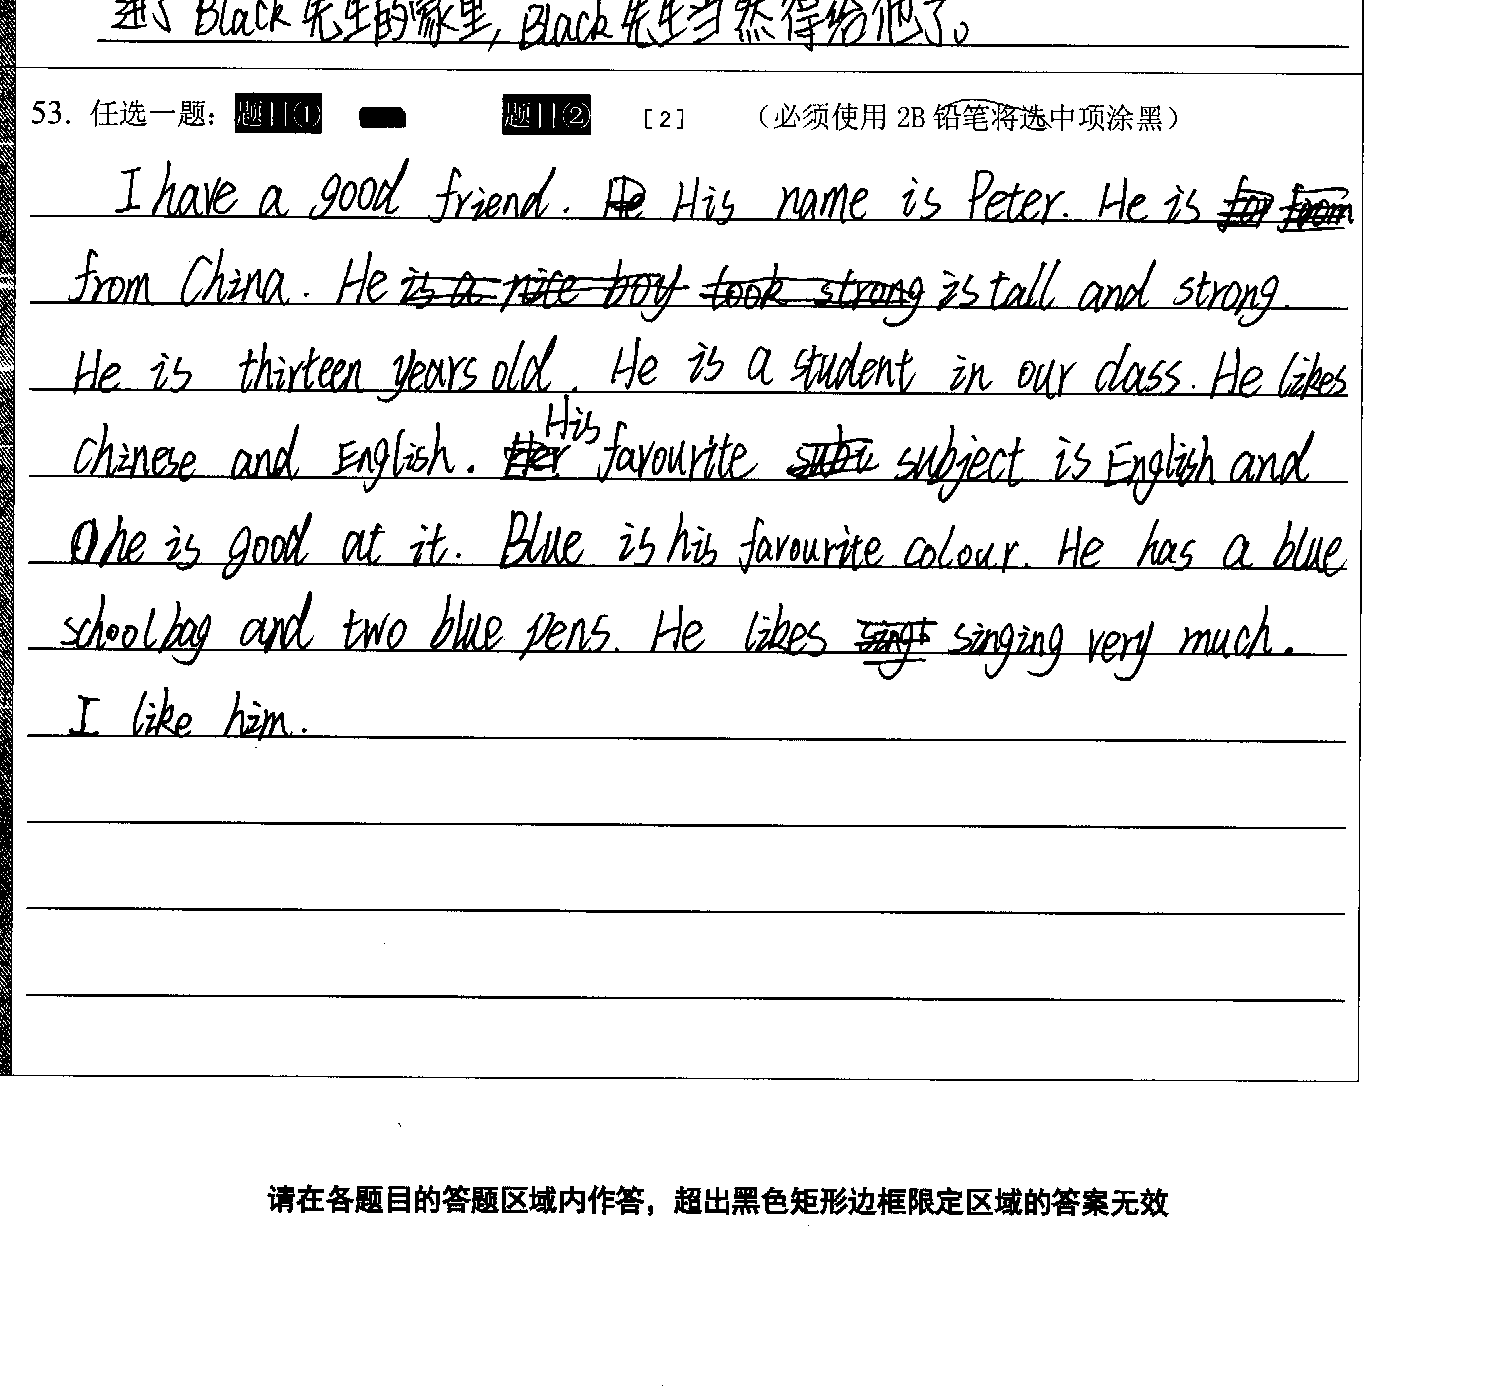 进了Black先生的家里，Black先生当然得给他了。
53. 任选一题：题目① 题目② [2] （必须使用 2B 铅笔将选中项涂黑）
I have a good friend. He His name is Peter. He is for from
from China. He is a nice boy took strong is tall and strong.
He is thirteen years old. He is a student in our class. He likes
Chinese and English. Her His favourite subj subject is English and
he is good at it. Blue is his favourite colour. He has a blue
schoolbag and two blue pens. He likes singing very much.
I like him.
请在各题目的答题区域内作答，超出黑色矩形边框限定区域的答案无效